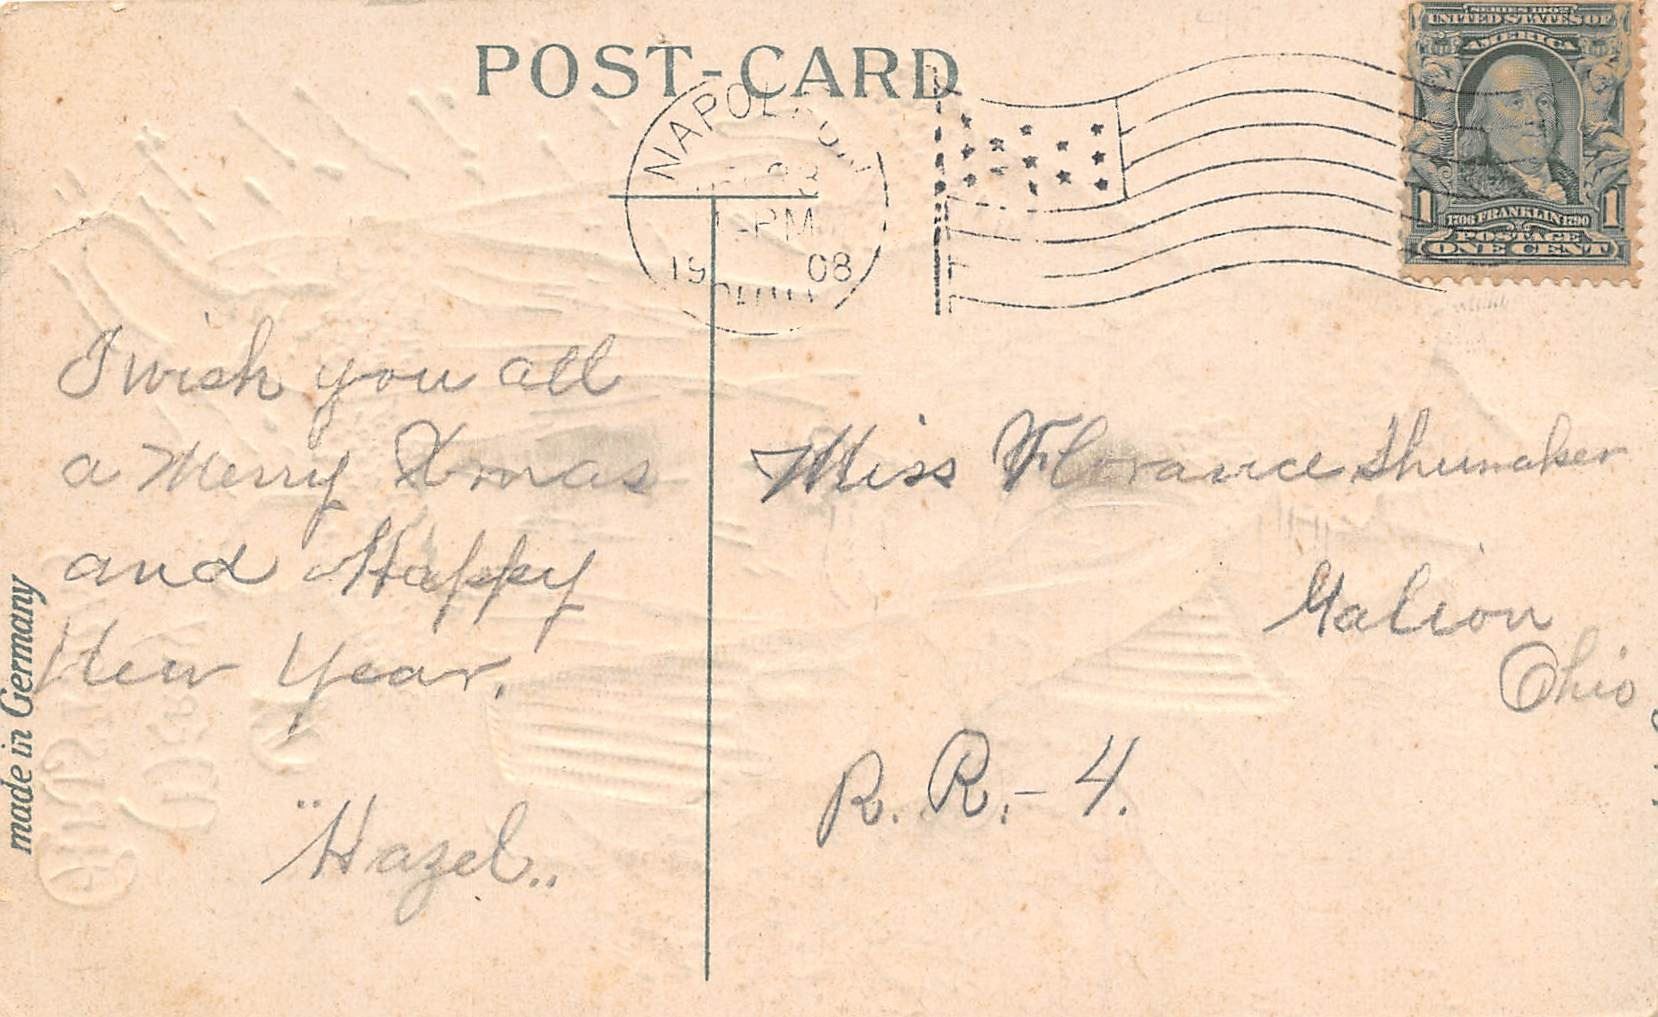 POST-CARD
NAPOLEON
23
PM
19 08
OHIO
SERIES 1902
UNITED STATES OF
AMERICA
1 1
1706 FRANKLIN 1790
POSTAGE
ONE CENT
I wish you all
a Merry Xmas
and Happy
New Year.
"Hazel..
Miss Florance Shumaker
Galion
Ohio
R. R. - 4.
made in Germany